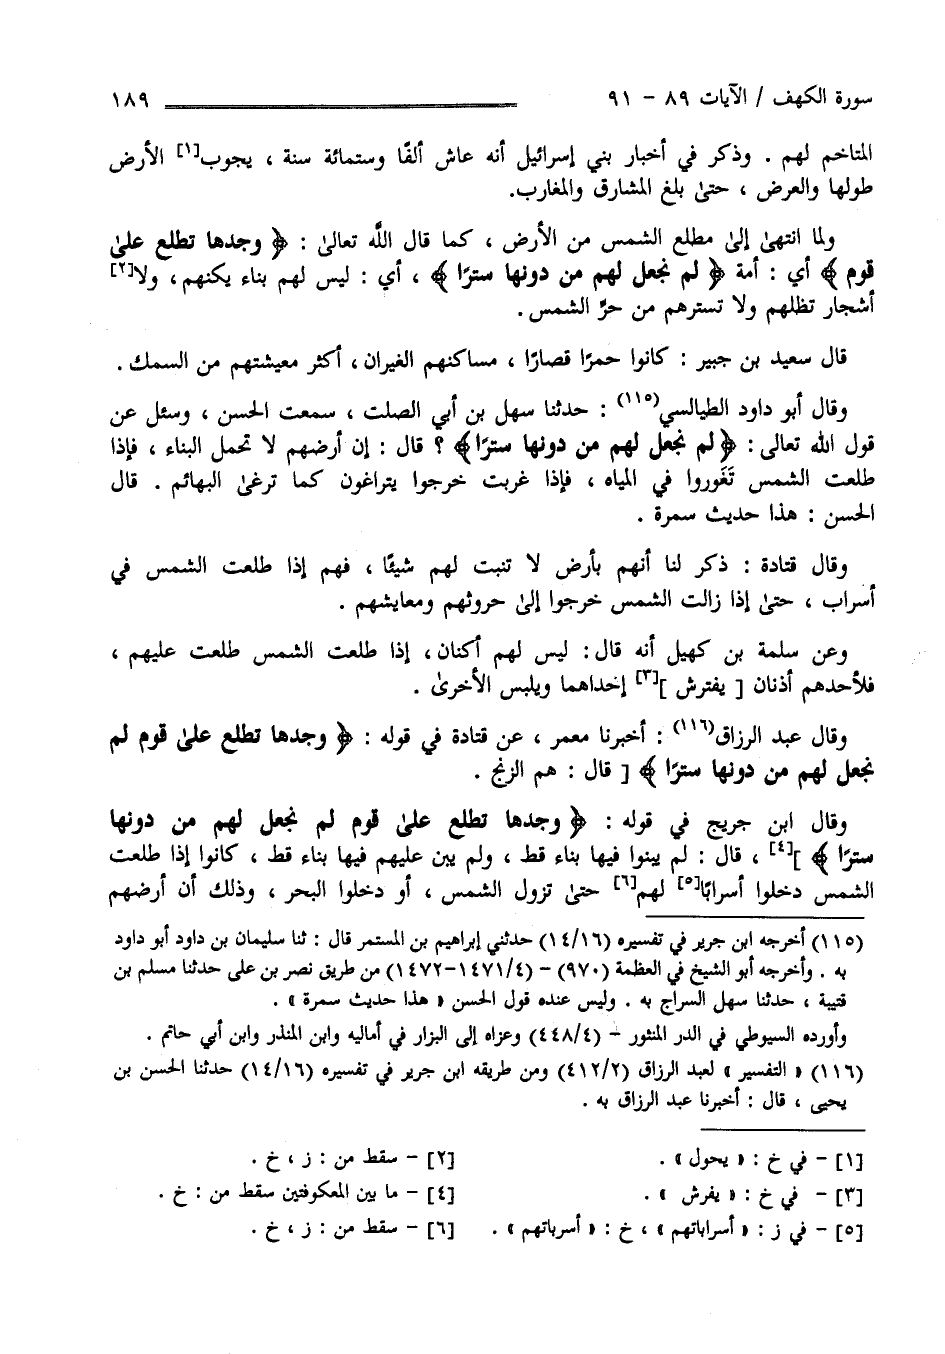 سورة الكهف / الآيات ٨٩ - ٩١ ١٨٩
المتاخم لهم . وذكر في أخبار بني إسرائيل أنه عاش ألفًا وستمائة سنة ، يجوب[١] الأرض
طولها والعرض ، حتىٰ بلغ المشارق والمغارب.
ولما انتهىٰ إلىٰ مطلع الشمس من الأرض ، كما قال اللَّه تعالىٰ : ﴿ وجدها تطلع علىٰ
قوم ﴾ أي : أمة ﴿ لم نجعل لهم من دونها سترًا ﴾ ، أي : ليس لهم بناء يكنهم، ولا[٢]
أشجار تظلهم ولا تسترهم من حرِّ الشمس .
قال سعيد بن جبير : كانوا حمرًا قصارًا ، مساكنهم الغيران، أكثر معيشتهم من السمك .
وقال أبو داود الطيالسي(١١٥) : حدثنا سهل بن أبي الصلت ، سمعت الحسن ، وسئل عن
قول الله تعالى : ﴿ لم نجعل لهم من دونها سترًا ﴾ ؟ قال : إن أرضهم لا تحمل البناء ، فإذا
طلعت الشمس تَغَوروا في المياه ، فإذا غربت خرجوا يتراغون كما ترغىٰ البهائم . قال
الحسن : هذا حديث سمرة .
وقال قتادة : ذكر لنا أنهم بأرض لا تنبت لهم شيئًا ، فهم إذا طلعت الشمس في
أسراب ، حتىٰ إذا زالت الشمس خرجوا إلىٰ حروثهم ومعايشهم .
وعن سلمة بن كهيل أنه قال : ليس لهم أكنان، إذا طلعت الشمس طلعت عليهم ،
فلأحدهم أذنان [ يفترش ][٣] إحداهما ويلبس الأخرىٰ .
وقال عبد الرزاق(١١٦) : أخبرنا معمر ، عن قتادة في قوله : ﴿ وجدها تطلع علىٰ قوم لم
نجعل لهم من دونها سترًا ﴾ [ قال : هم الزنج .
وقال ابن جريج في قوله : ﴿ وجدها تطلع علىٰ قوم لم نجعل لهم من دونها
سترًا ﴾ ][٤] ، قال : لم يبنوا فيها بناء قط ، ولم يبن عليهم فيها بناء قط ، كانوا إذا طلعت
الشمس دخلوا أسرابًا[٥] لهم[٦] حتىٰ تزول الشمس ، أو دخلوا البحر ، وذلك أن أرضهم
(١١٥) أخرجه ابن جرير في تفسيره (١٤/١٦) حدثني إبراهيم بن المستمر قال : ثنا سليمان بن داود أبو داود
به . وأخرجه أبو الشيخ في العظمة (٩٧٠) - (١٤٧١/٤-١٤٧٢) من طريق نصر بن على حدثنا مسلم بن
قتيبة ، حدثنا سهل السراج به . وليس عنده قول الحسن « هذا حديث سمرة » .
وأورده السيوطي في الدر المنثور - (٤٤٨/٤) وعزاه إلى البزار في أماليه وابن المنذر وابن أبي حاتم .
(١١٦) « التفسير » لعبد الرزاق (٤١٢/٢) ومن طريقه ابن جرير في تفسيره (١٤/١٦) حدثنا الحسن بن
يحيى ، قال : أخبرنا عبد الرزاق به .
[١] - في خ : « يحول » . [٢] - سقط من : ز ، خ .
[٣] - في خ : « يفرش » . [٤] - ما بين المعكوفتين سقط من : خ .
[٥] - في ز : « أسراباتهم » ، خ : « أسرباتهم » . [٦] - سقط من : ز ، خ .